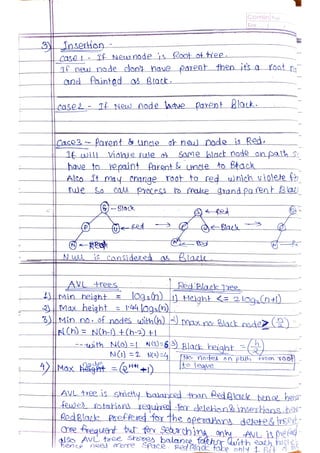 3) Insertion -
case 1. If New node is Root of tree.
If new node dont have parent then it's a root
and Painted as Black.
case 2 - If New node have parent Black.
Case 3 - Parent & uncle of new node is Red.
If will Violate rule of same black node on path
have to repaint Parent & uncle to Black
Also It may change root to red which violate
rule so call process to make grand parent
G - Black
P
U - Red
N - Red
G - Red
P
U - Black
N - Red
Null is considered as Black
AVL trees
Red Black Tree
1) Min height = log2(n)
1) Height <= 2 log2(n+1)
2) Max height = 1.44 log2(n)
3) Min no. of nodes with (h)
2) max no. Black node
N(h) = N(h-1) + (h-2) + 1
-- with N(0)=1
N(1)=2
3) Black height = (h/2)
No nodes on path from root
to leave
4) Max node = (2^(H+1) + 1)
AVL tree is strictly balanced than Red Black hence
fewer rotations required for deletion & insertions
Red Black Preffered for the operations deletes
are frequent but for Searching only AVL is
also AVL tree stores balance factor with each
hence need more space. Red Black take only 1